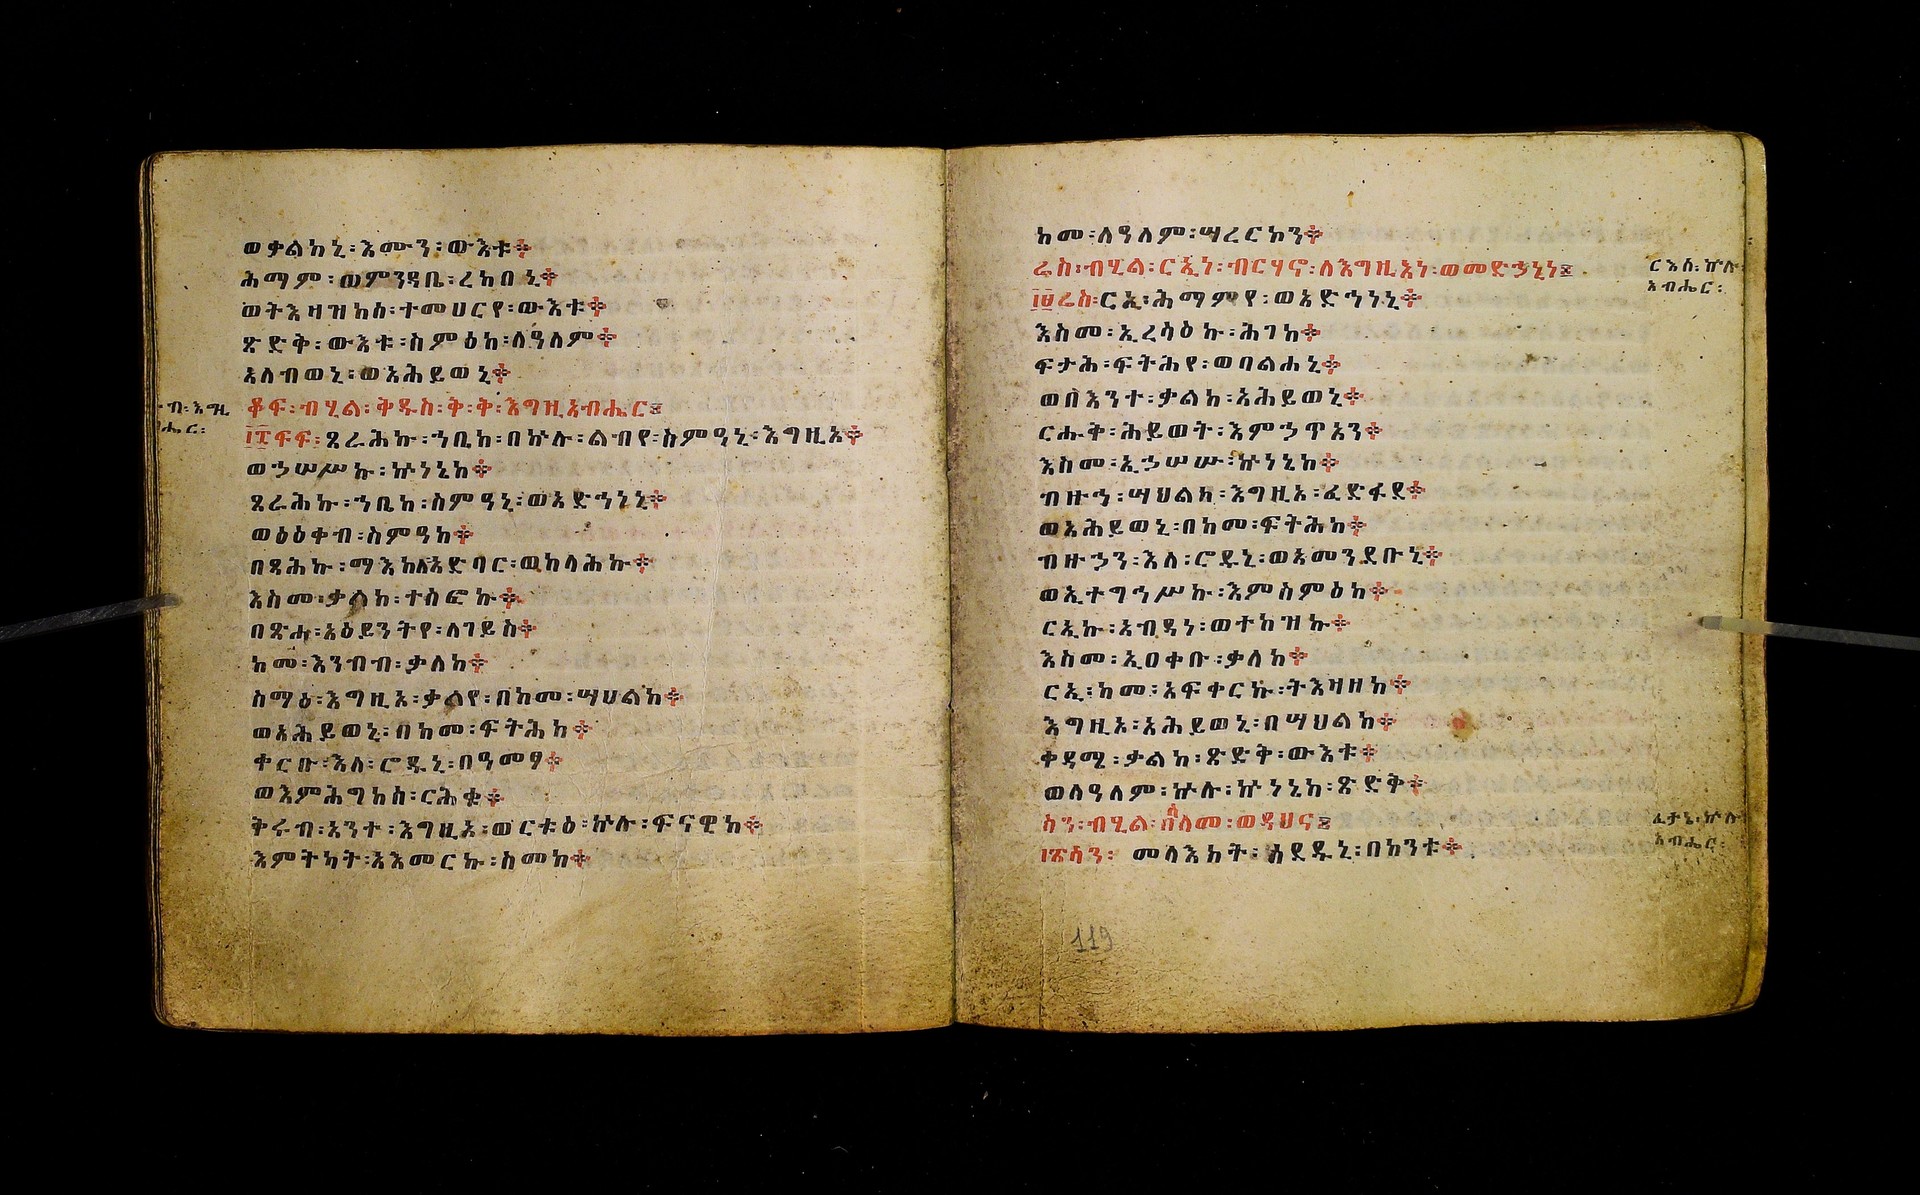 ወቃልከኒ፡እሙን፡ውእቱ፨
ሕማም፡ወምንዳቤ፡ረከበኒ፨
ወትእዛዝከሰ፡ተመሀርየ፡ውእቱ፨
ጽድቅ፡ውእቱ፡ስምዕከ፡ለዓለም፨
አለብወኒ፡ወአሕይወኒ፨
ቆፍ፡ብሂል፡ቅዱስ፡ቅ፡ቅ፡እግዚአብሔር፨
፲፱ፍፍ፡ጸራሕኩ፡ኀቤከ፡በኵሉ፡ልብየ፡ስምዓኒ፡እግዚኦ፨
ወኃሠሥኩ፡ኵነኔከ፨
ጸራሕኩ፡ኀቤከ፡ስምዓኒ፡ወአድኅነኒ፨
ወዕዕቀብ፡ስምዓከ፨
በጻሕኩ፡ማእከለአድባር፡ወከላሕኩ፨
እስመ፡ቃልከ፡ተሰፎኩ፨
በጽሐ፡አዕይንትየ፡ለገይስ፨
ከመ፡እንብብ፡ቃለከ፨
ስማዕ፡እግዚኦ፡ቃልየ፡በከመ፡ሣህልከ፨
ወአሕይወኒ፡በከመ፡ፍትሕከ፨
ቀርቡ፡እለ፡ሮዱኒ፡በዓመፃ፨
ወእምሕግከሰ፡ርሕቁ፨
ቅሩብ፡አንተ፡እግዚኦ፡ወርቱዕ፡ኵሉ፡ፍናዊከ፨
እምትካት፡አእመርኩ፡ስመከ፨
ብ፡እግዚ
ሔር፡
ከመ፡ለዓለም፡ሣረርኮን፨
ሬስ፡ብሂል፡ርኢነ፡ብርሃኖ፡ለእግዚእነ፡ወመድኃኒነ፨
፲፱ሬስ፡ርኢ፡ሕማምየ፡ወአድኅነኒ፨
እስመ፡ኢረሳዕኩ፡ሕገከ፨
ፍታሕ፡ፍትሕየ፡ወባልሐኒ፨
ወበእንተ፡ቃልከ፡አሕይወኒ፨
ርሑቅ፡ሕይወት፡እምኃጥአን፨
እስመ፡ኢኃሠሡ፡ኵነኔከ፨
ብዙኅ፡ሣህልከ፡እግዚኦ፡ፈድፋደ፨
ወአሕይወኒ፡በከመ፡ፍትሕከ፨
ብዙኃን፡እለ፡ሮዱኒ፡ወአመንደቡኒ፨
ወኢተግኅሥኩ፡እምስምዕከ፨
ርኢኩ፡አብዳነ፡ወተከዝኩ፨
እስመ፡ኢዐቀቡ፡ቃለከ፨
ርኢ፡ከመ፡አፍቀርኩ፡ትእዛዘከ፨
እግዚኦ፡አሕይወኒ፡በሣህልከ፨
ቀዳሜ፡ቃልከ፡ጽድቅ፡ውእቱ፨
ወለዓለም፡ኵሉ፡ኵነኔከ፡ጽድቅ፨
ሳን፡ብሂል፡በሰላመ፡ወዳህና፨
፳ሳን፡መላእክት፡ሰደዱኒ፡በከንቱ፨
ርእሰ፡ኵሉ
አብሔር፡
ፈታኔ፡ኵሉ
አብሔር፡
119